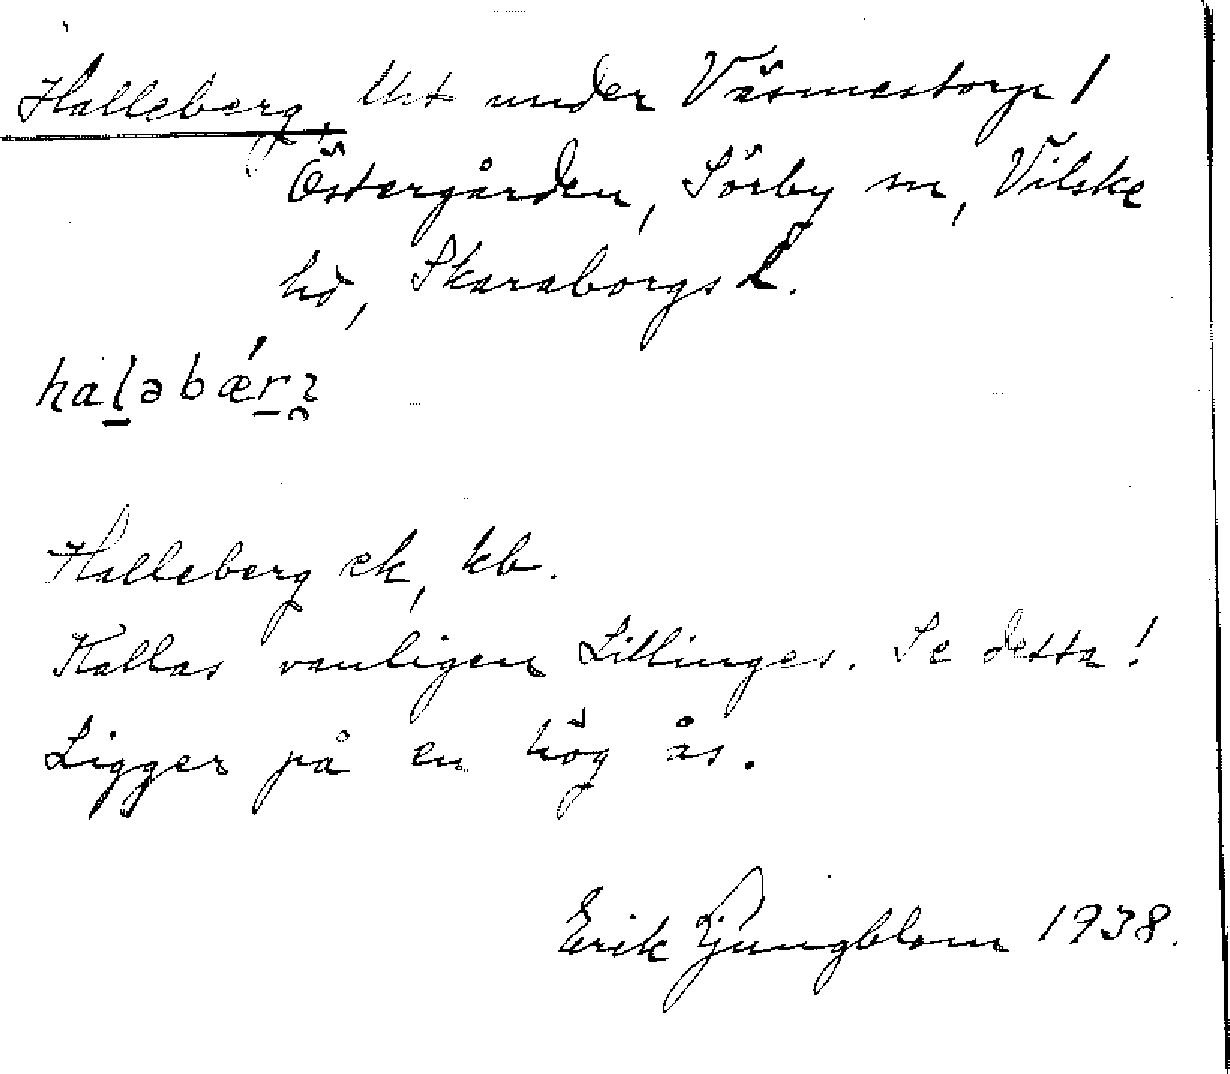 Halleberg, lht under Väsmestorp 1
Östergården, Sörby sn, Vilske
hd, Skaraborgs l.
haləbæ´rɜ
Halleberg ek, kb.
Kallas vanligen Lillinges. Se detta!
Ligger på en hög ås.
Erik Ljungblom 1938.